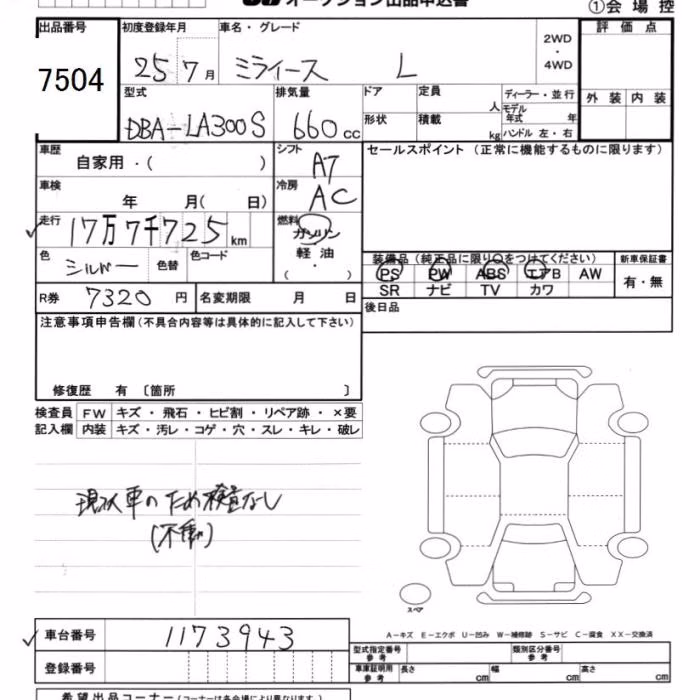 オークション出品申込書
①会 場 控
出品番号 初度登録年月 車名・グレード 2WD・4WD 評 価 点
7504 25 7月 ミライース L
型式 排気量 ドア 定員 人 ディーラー・並行 外 装 内 装
DBA-LA300S 660cc モデル年式 年
形状 積載 kg ハンドル 左・右
車歴 シフト セールスポイント (正常に機能するものに限ります)
自家用・( ) A7
車検 冷房
年 月( 日) AC
走行 燃料
17万7千725km ガソリン
色 色替 色コード 軽 油 装備品 (純正品に限り○をつけてください) 新車保証書
シルバー ( ・ ) PS PW ABS エアB AW 有・無
R券 7320円 名変期限 月 日 SR ナビ TV カワ
注意事項申告欄 (不具合内容等は具体的に記入して下さい) 後日品
修復歴 有 〔箇所 〕
検査員 FW キズ・飛石・ヒビ割・リペア跡・×要
記入欄 内装 キズ・汚レ・コゲ・穴・スレ・キレ・破レ
現状車のため検査なし
(不動)
スペア
車台番号 1173943 A-キズ E-エクボ U-凹み W-補修跡 S-サビ C-腐食 XX-交換済
型式指定番号 参考 類別区分番号 参考
登録番号 車庫証明用 参考 長さ cm 幅 cm 高さ cm
希望出品コーナー (コーナーは各会場により異なります。)